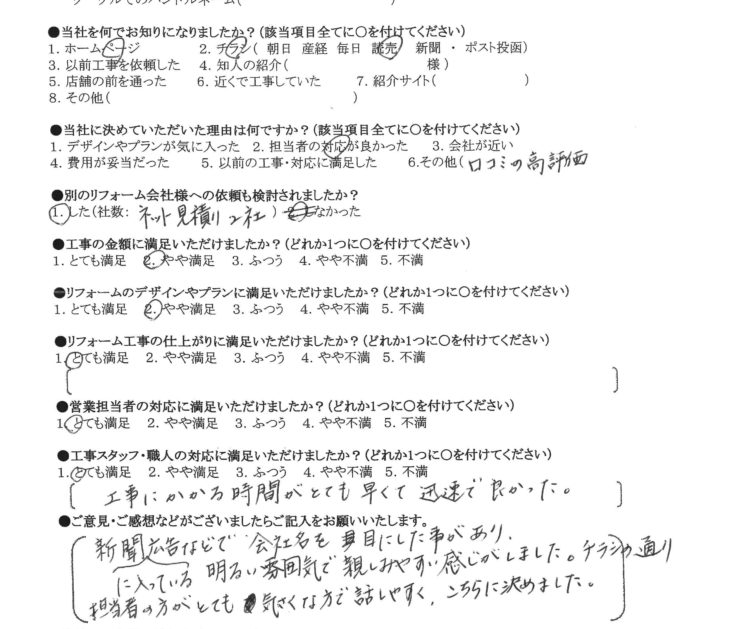 グーグルでのハンドルネーム( )
●当社を何でお知りになりましたか?(該当項目全てに〇を付けてください)
1. ホームページ 2. チラシ( 朝日 産経 毎日 読売 新聞 ・ ポスト投函)
3. 以前工事を依頼した 4. 知人の紹介( 様 )
5. 店舗の前を通った 6. 近くで工事していた 7. 紹介サイト( )
8. その他( )
●当社に決めていただいた理由は何ですか?(該当項目全てに〇を付けてください)
1. デザインやプランが気に入った 2. 担当者の対応が良かった 3. 会社が近い
4. 費用が妥当だった 5. 以前の工事・対応に満足した 6.その他( 口コミの高評価
●別のリフォーム会社様への依頼も検討されましたか?
1. した(社数: ネット見積り2社 ) なかった
●工事の金額に満足いただけましたか?(どれか1つに〇を付けてください)
1. とても満足 2. やや満足 3. ふつう 4. やや不満 5. 不満
●リフォームのデザインやプランに満足いただけましたか?(どれか1つに〇を付けてください)
1. とても満足 2. やや満足 3. ふつう 4. やや不満 5. 不満
●リフォーム工事の仕上がりに満足いただけましたか?(どれか1つに〇を付けてください)
1. とても満足 2. やや満足 3. ふつう 4. やや不満 5. 不満
●営業担当者の対応に満足いただけましたか?(どれか1つに〇を付けてください)
1. とても満足 2. やや満足 3. ふつう 4. やや不満 5. 不満
●工事スタッフ・職人の対応に満足いただけましたか?(どれか1つに〇を付けてください)
1. とても満足 2. やや満足 3. ふつう 4. やや不満 5. 不満
工事にかかる時間がとても早くて迅速で良かった。
●ご意見・ご感想などがございましたらご記入をお願いいたします。
新聞広告などで会社名を目にした事があり、
に入っている 明るい雰囲気で親しみやすい感じがしました。チラシの通り
担当者の方がとても気さくな方で話しやすく、こちらに決めました。